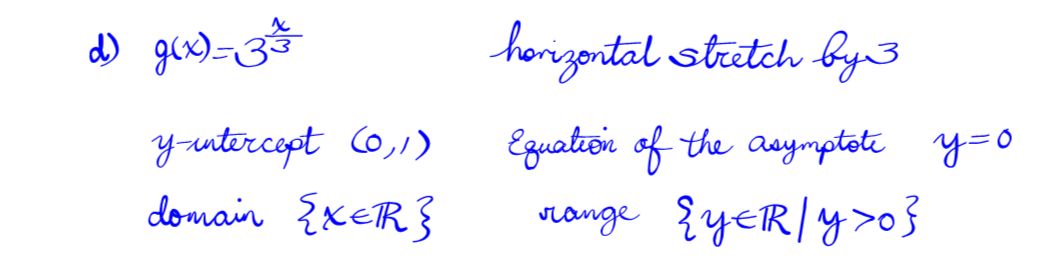 d) g(x)=3^{x/3} horizontal stretch by 3
y-intercept (0,1) Equation of the asymptote y=0
domain {x∈ℝ} range {y∈ℝ/y>0}